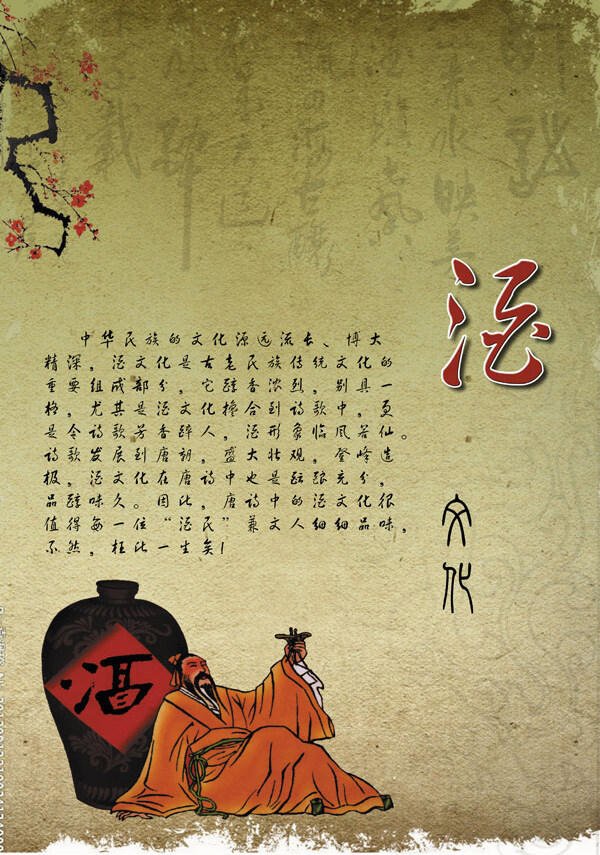 酒
文
化
中华民族的文化源远流长、博大
精深，酒文化是古老民族传统文化的
重要组成部分，它醇香浓烈，别具一
格，尤其是酒文化搀合到诗歌中，更
是令诗歌芳香醉人，酒形象临风若仙。
诗歌发展到唐朝，盛大壮观，登峰造
极，酒文化在唐诗中也是酝酿充分，
品醇味久。因此，唐诗中的酒文化很
值得每一位“酒民”兼文人细细品味，
不然，枉此一生矣！
酒